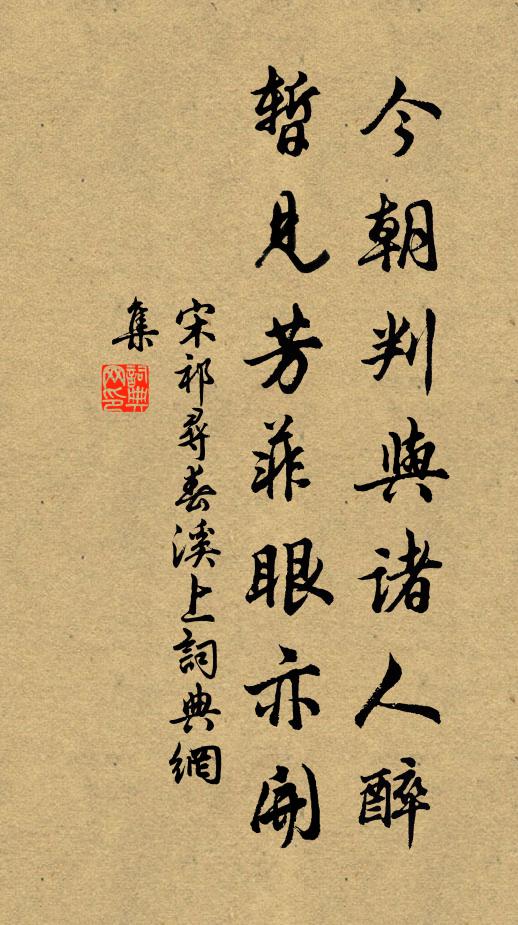 今朝判與諸人醉
暫見芳菲眼亦開
宋祁尋春溪上詞典網
集
詞典網印